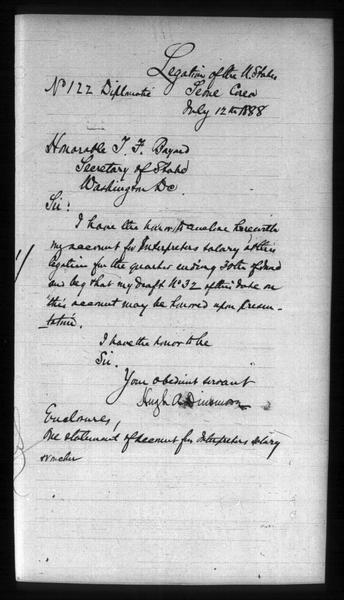 Legation of the U. States
No 122 Diplomatic Seoul Corea
July 12th 1888
Honorable T. F. Bayard
Secretary of State
Washington D.C.
Sir:
I have the honor to enclose herewith
my account for Interpreters salary at this
legation for the quarter ending 30th of June
and beg that my draft No 32 of this date on
this account may be honored upon presen-
tation.
I have the honor to be
Sir.
Your obedient servant
Hugh A. Dinsmore
Enclosures,
One statement of account for Interpreters salary
voucher